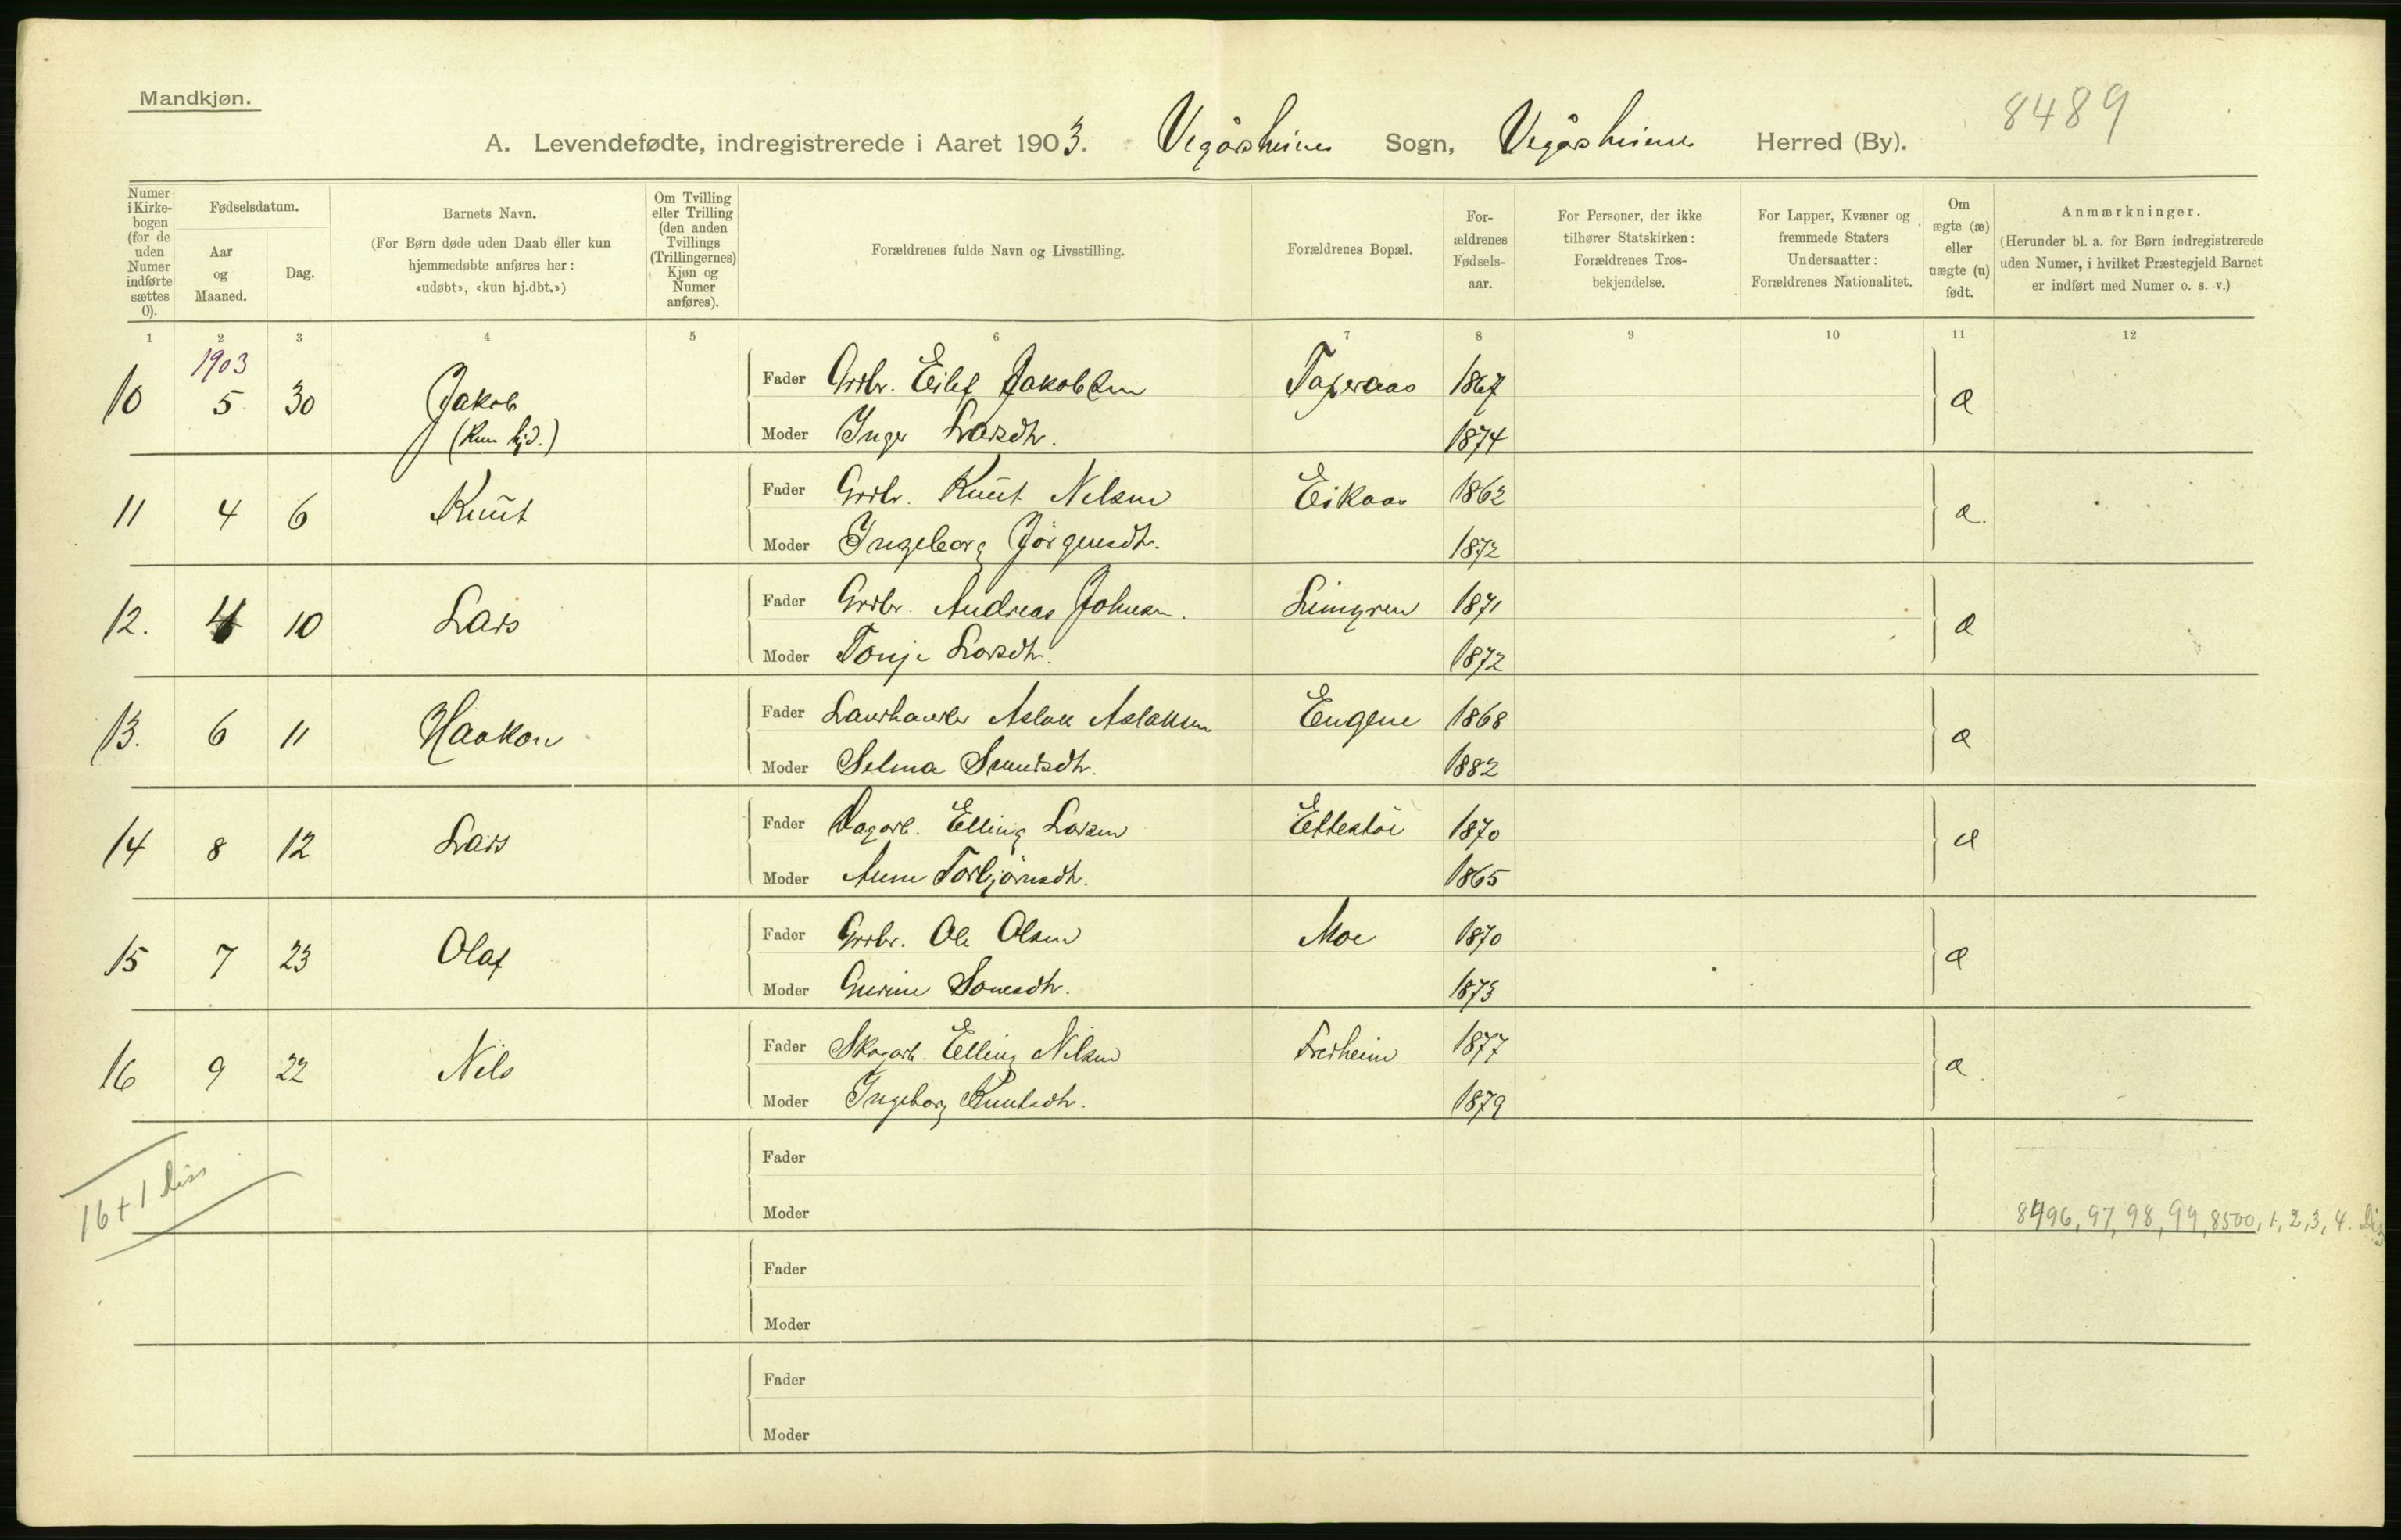 Mandkjøn.
8489
A. Levendefødte, indregistrerede i Aaret 1903. Vegårsheien Sogn, Vegårsheien Herred (By).
Numer i Kirkebogen (for de uden Numer indførte sættes 0).
Fødselsdatum.
Aar og Maaned.
Dag.
Barnets Navn.
(For Børn døde uden Daab eller kun hjemmedøbte anføres her: «udøbt», «kun hj.dbt.»)
Om Tvilling eller Trilling (den anden Tvillings (Trillingernes) Kjøn og Numer anføres).
Forældrenes fulde Navn og Livsstilling.
Forældrenes Bopæl.
Forældrenes Fødselsaar.
For Personer, der ikke tilhører Statskirken: Forældrenes Trosbekjendelse.
For Lapper, Kvæner og fremmede Staters Undersaatter: Forældrenes Nationalitet.
Om ægte (æ) eller uægte (u) født.
Anmærkninger.
(Herunder bl. a. for Børn indregistrerede uden Numer, i hvilket Præstegjeld Barnet er indført med Numer o. s. v.)
1 2 3 4 5 6 7 8 9 10 11 12
1903
10 5 30 Jakob (kun hjd.) Fader Grdbr. Eilef Jakobsen 1867 æ
Moder Inger Larsdtr. 1874
11 4 6 Knut Fader Grdbr. Knut Nilsen Eikaas 1862 æ.
Moder Ingeborg Jörgensdtr. 1872
12. 4 10 Lars Fader Grdbr. Andreas Johnsen. Limgren 1871 æ
Moder Tonje Larsdtr. 1872
13. 6 11 Haakon Fader Landhandler Aslak Aslaksen Engene 1868 æ
Moder Selma 1882
14 8 12 Lars Fader Dagarb. Elling Larsen Ettestöl 1870 æ
Moder Anne Torbjörnsdtr. 1865
15 7 23 Olaf Fader Grdbr. Ole Olsen Moe 1870 æ
Moder Gurine 1873
16 9 22 Nils Fader Skogarb. Elling Nilsen 1877 æ
Moder Ingeborg Knutsdtr. 1879
Fader
16 + 1 dis
Moder
8496, 97, 98, 99, 8500, 1, 2, 3, 4. Dis
Fader
Moder
Fader
Moder